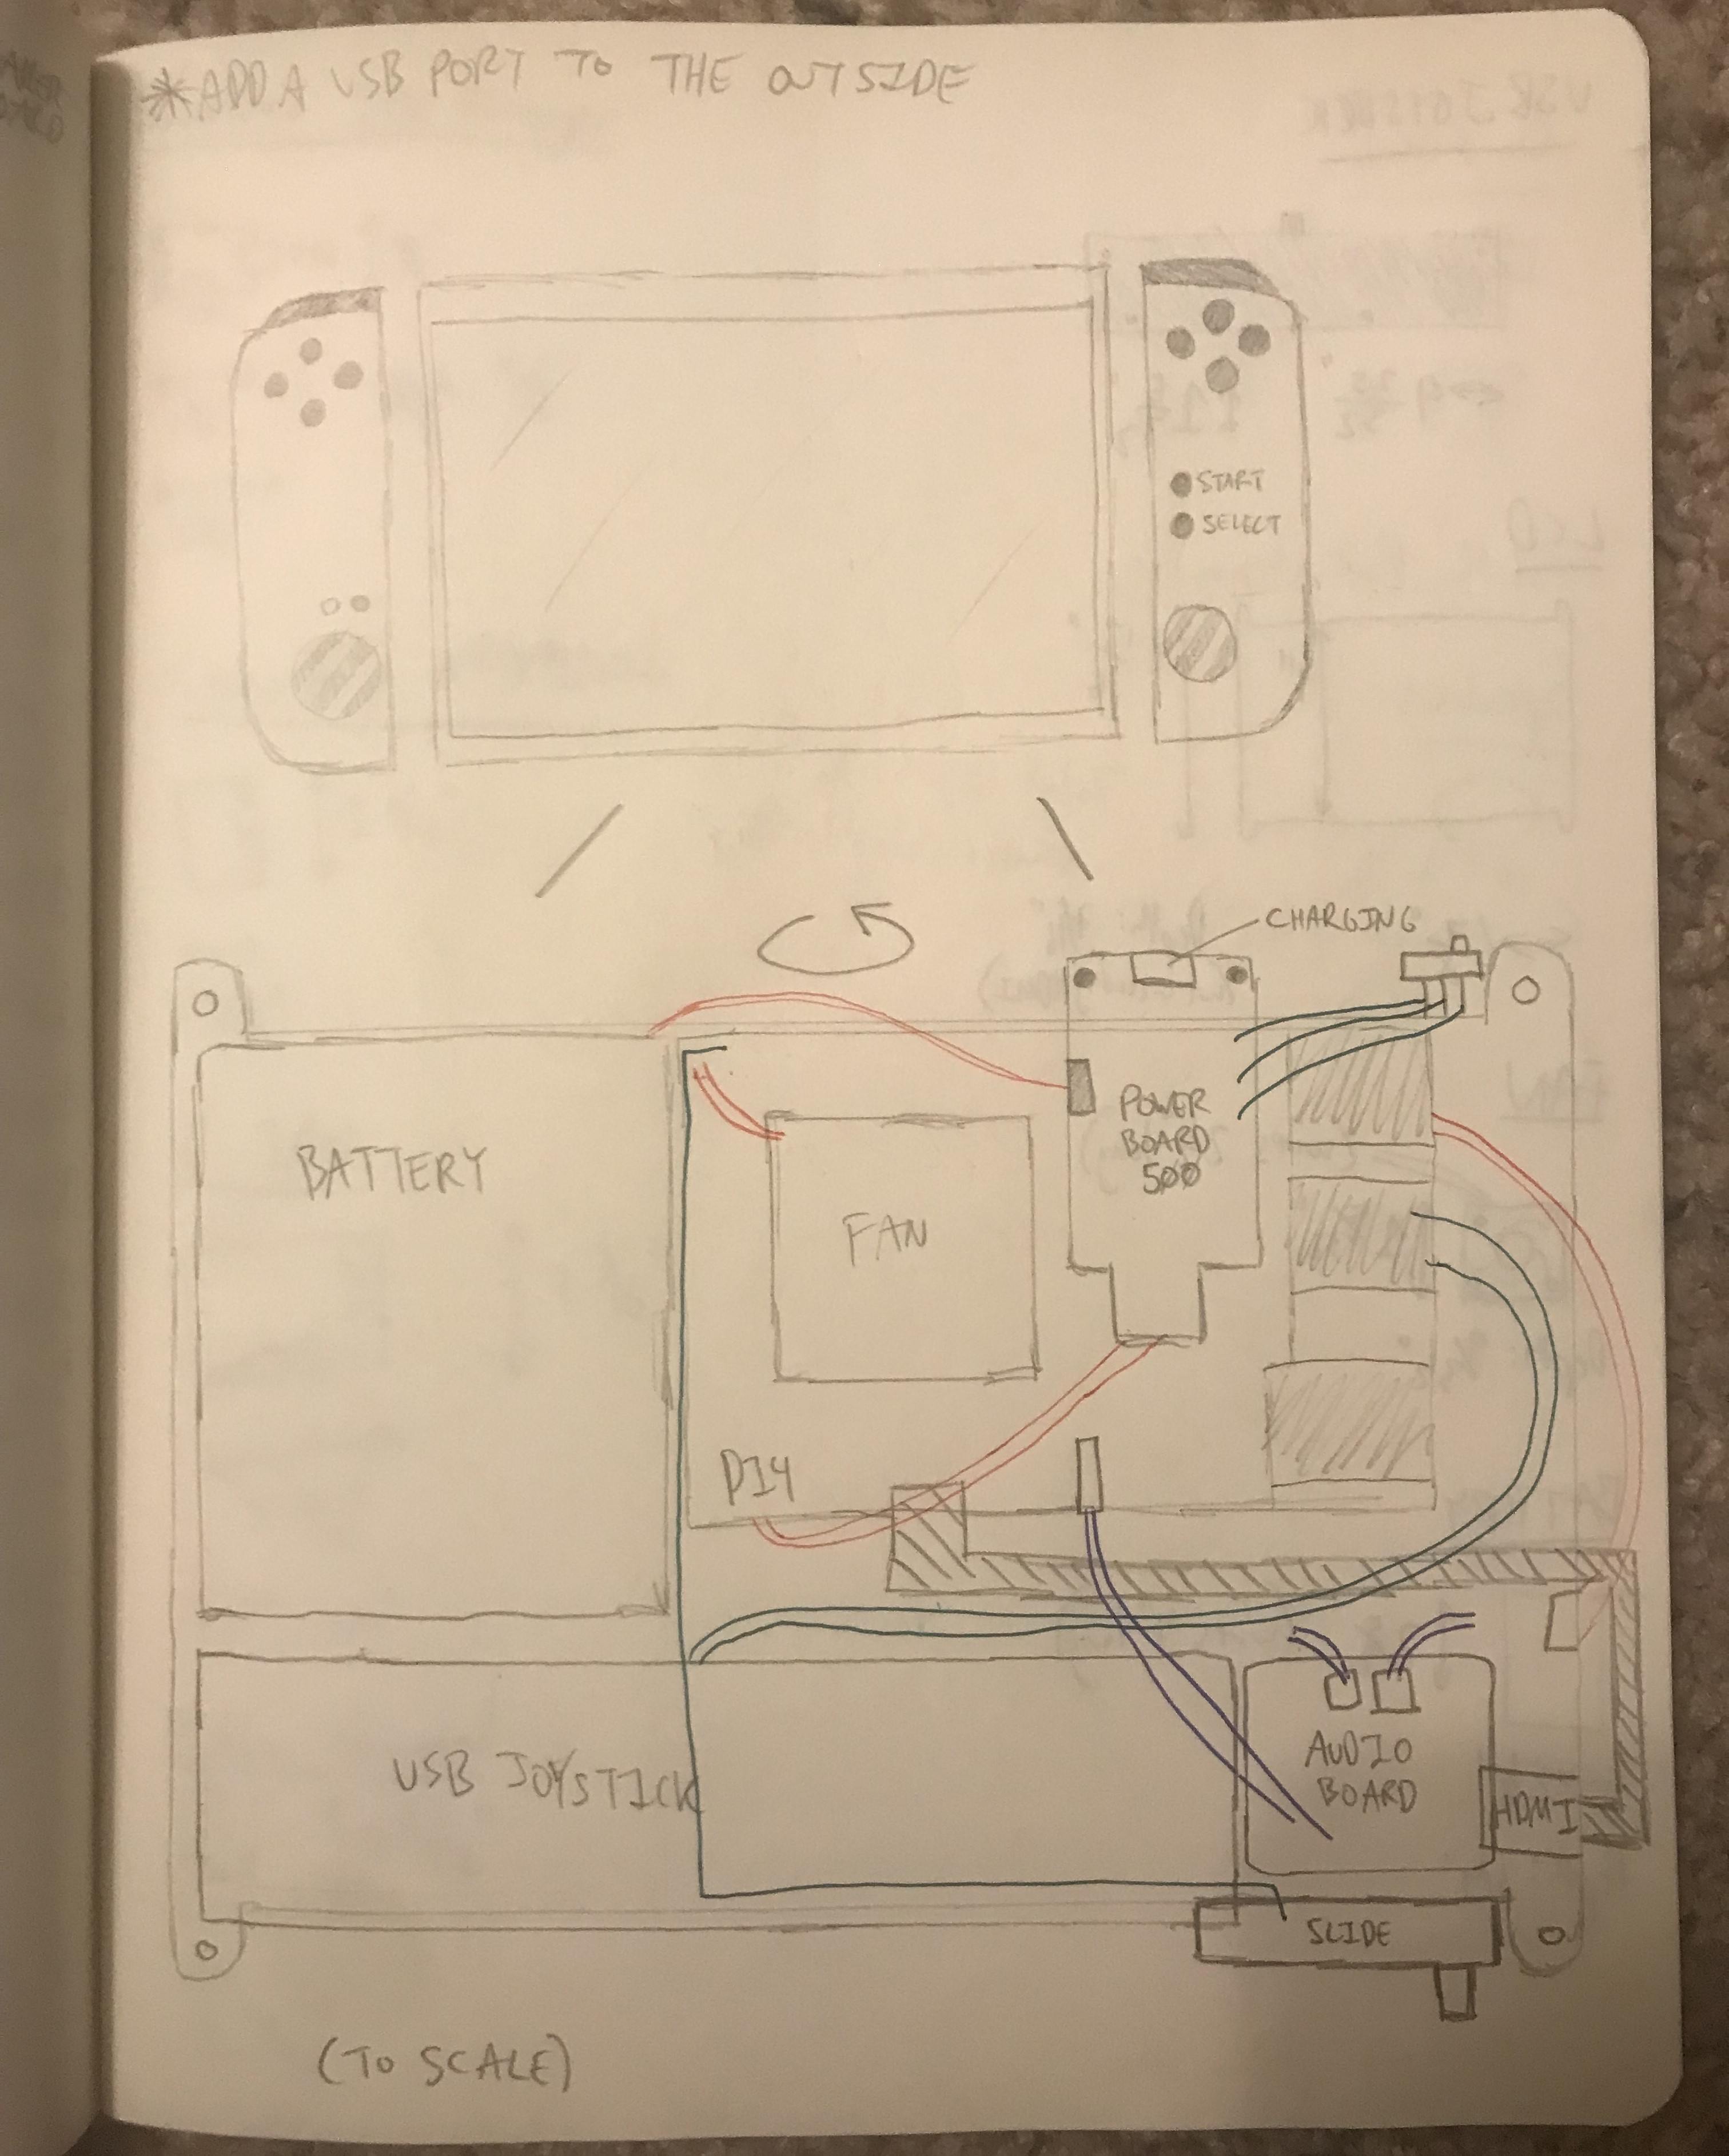 *ADD A USB PORT TO THE OUTSIDE
START
SELECT
CHARGING
POWER
BOARD
500
BATTERY
FAN
PI4
USB JOYSTICK
AUDIO
BOARD
HDMI
SLIDE
(TO SCALE)